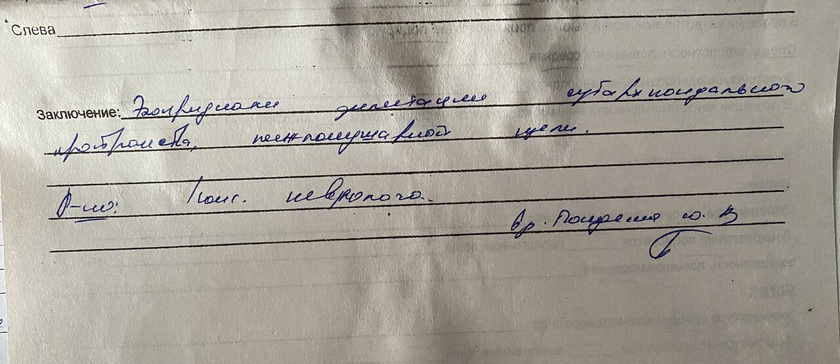 Слева
Заключение: Эхопризнаки дилятации субарахноидального
пространства, межполушарной щели.
Р-но: Конс. невролога.
Вр. Ю. В